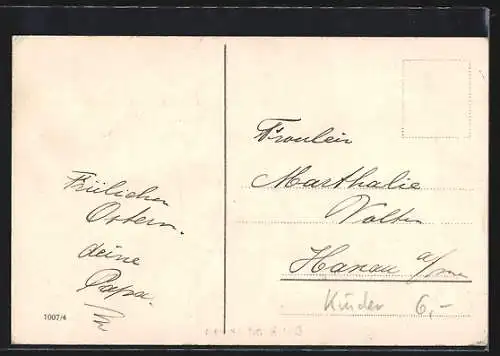 Frölichen
Ostern.
deine
Papa.
1007/4
Fraulein
Marthalie
Hanau a/m
Kinder 6,-